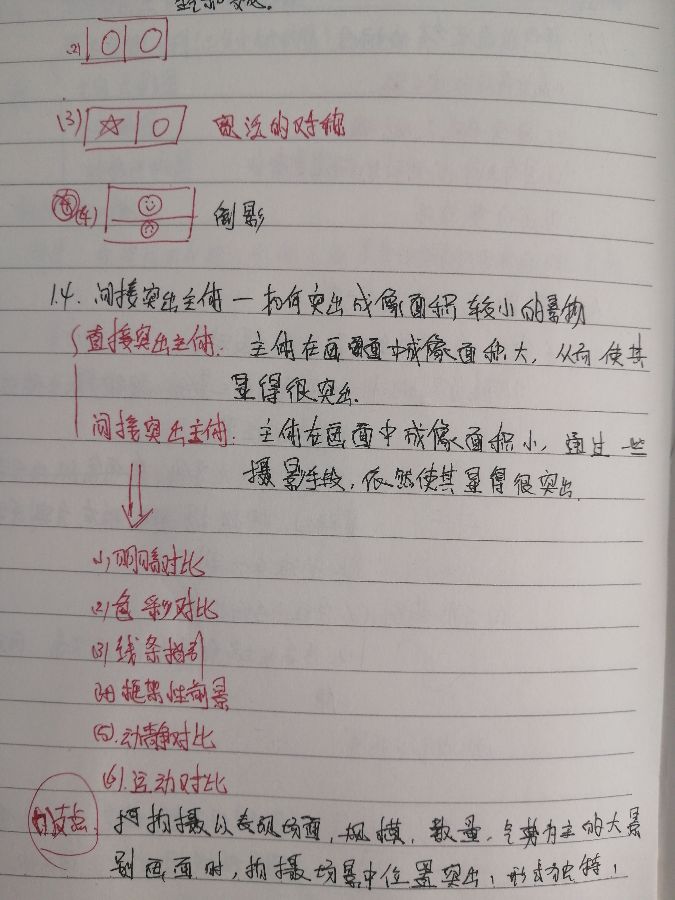 (2)
(3) 宽泛的对称
(4) 倒影
1.4. 间接突出主体 — 如何突出成像面积较小的景物
直接突出主体. 主体在画面中成像面积大, 从而使其
显得很突出.
间接突出主体. 主体在画面中成像面积小, 通过一些
摄影手段, 依然使其显得很突出.
(1) 明暗对比
(2) 色彩对比
(3) 线条指引
(4) 框架性前景
(5). 动静对比
(6). 运动对比
支点 拍摄以表现场面, 规模, 数量, 气势为主的大景
别画面时, 拍摄场景中位置突出, 形式独特,